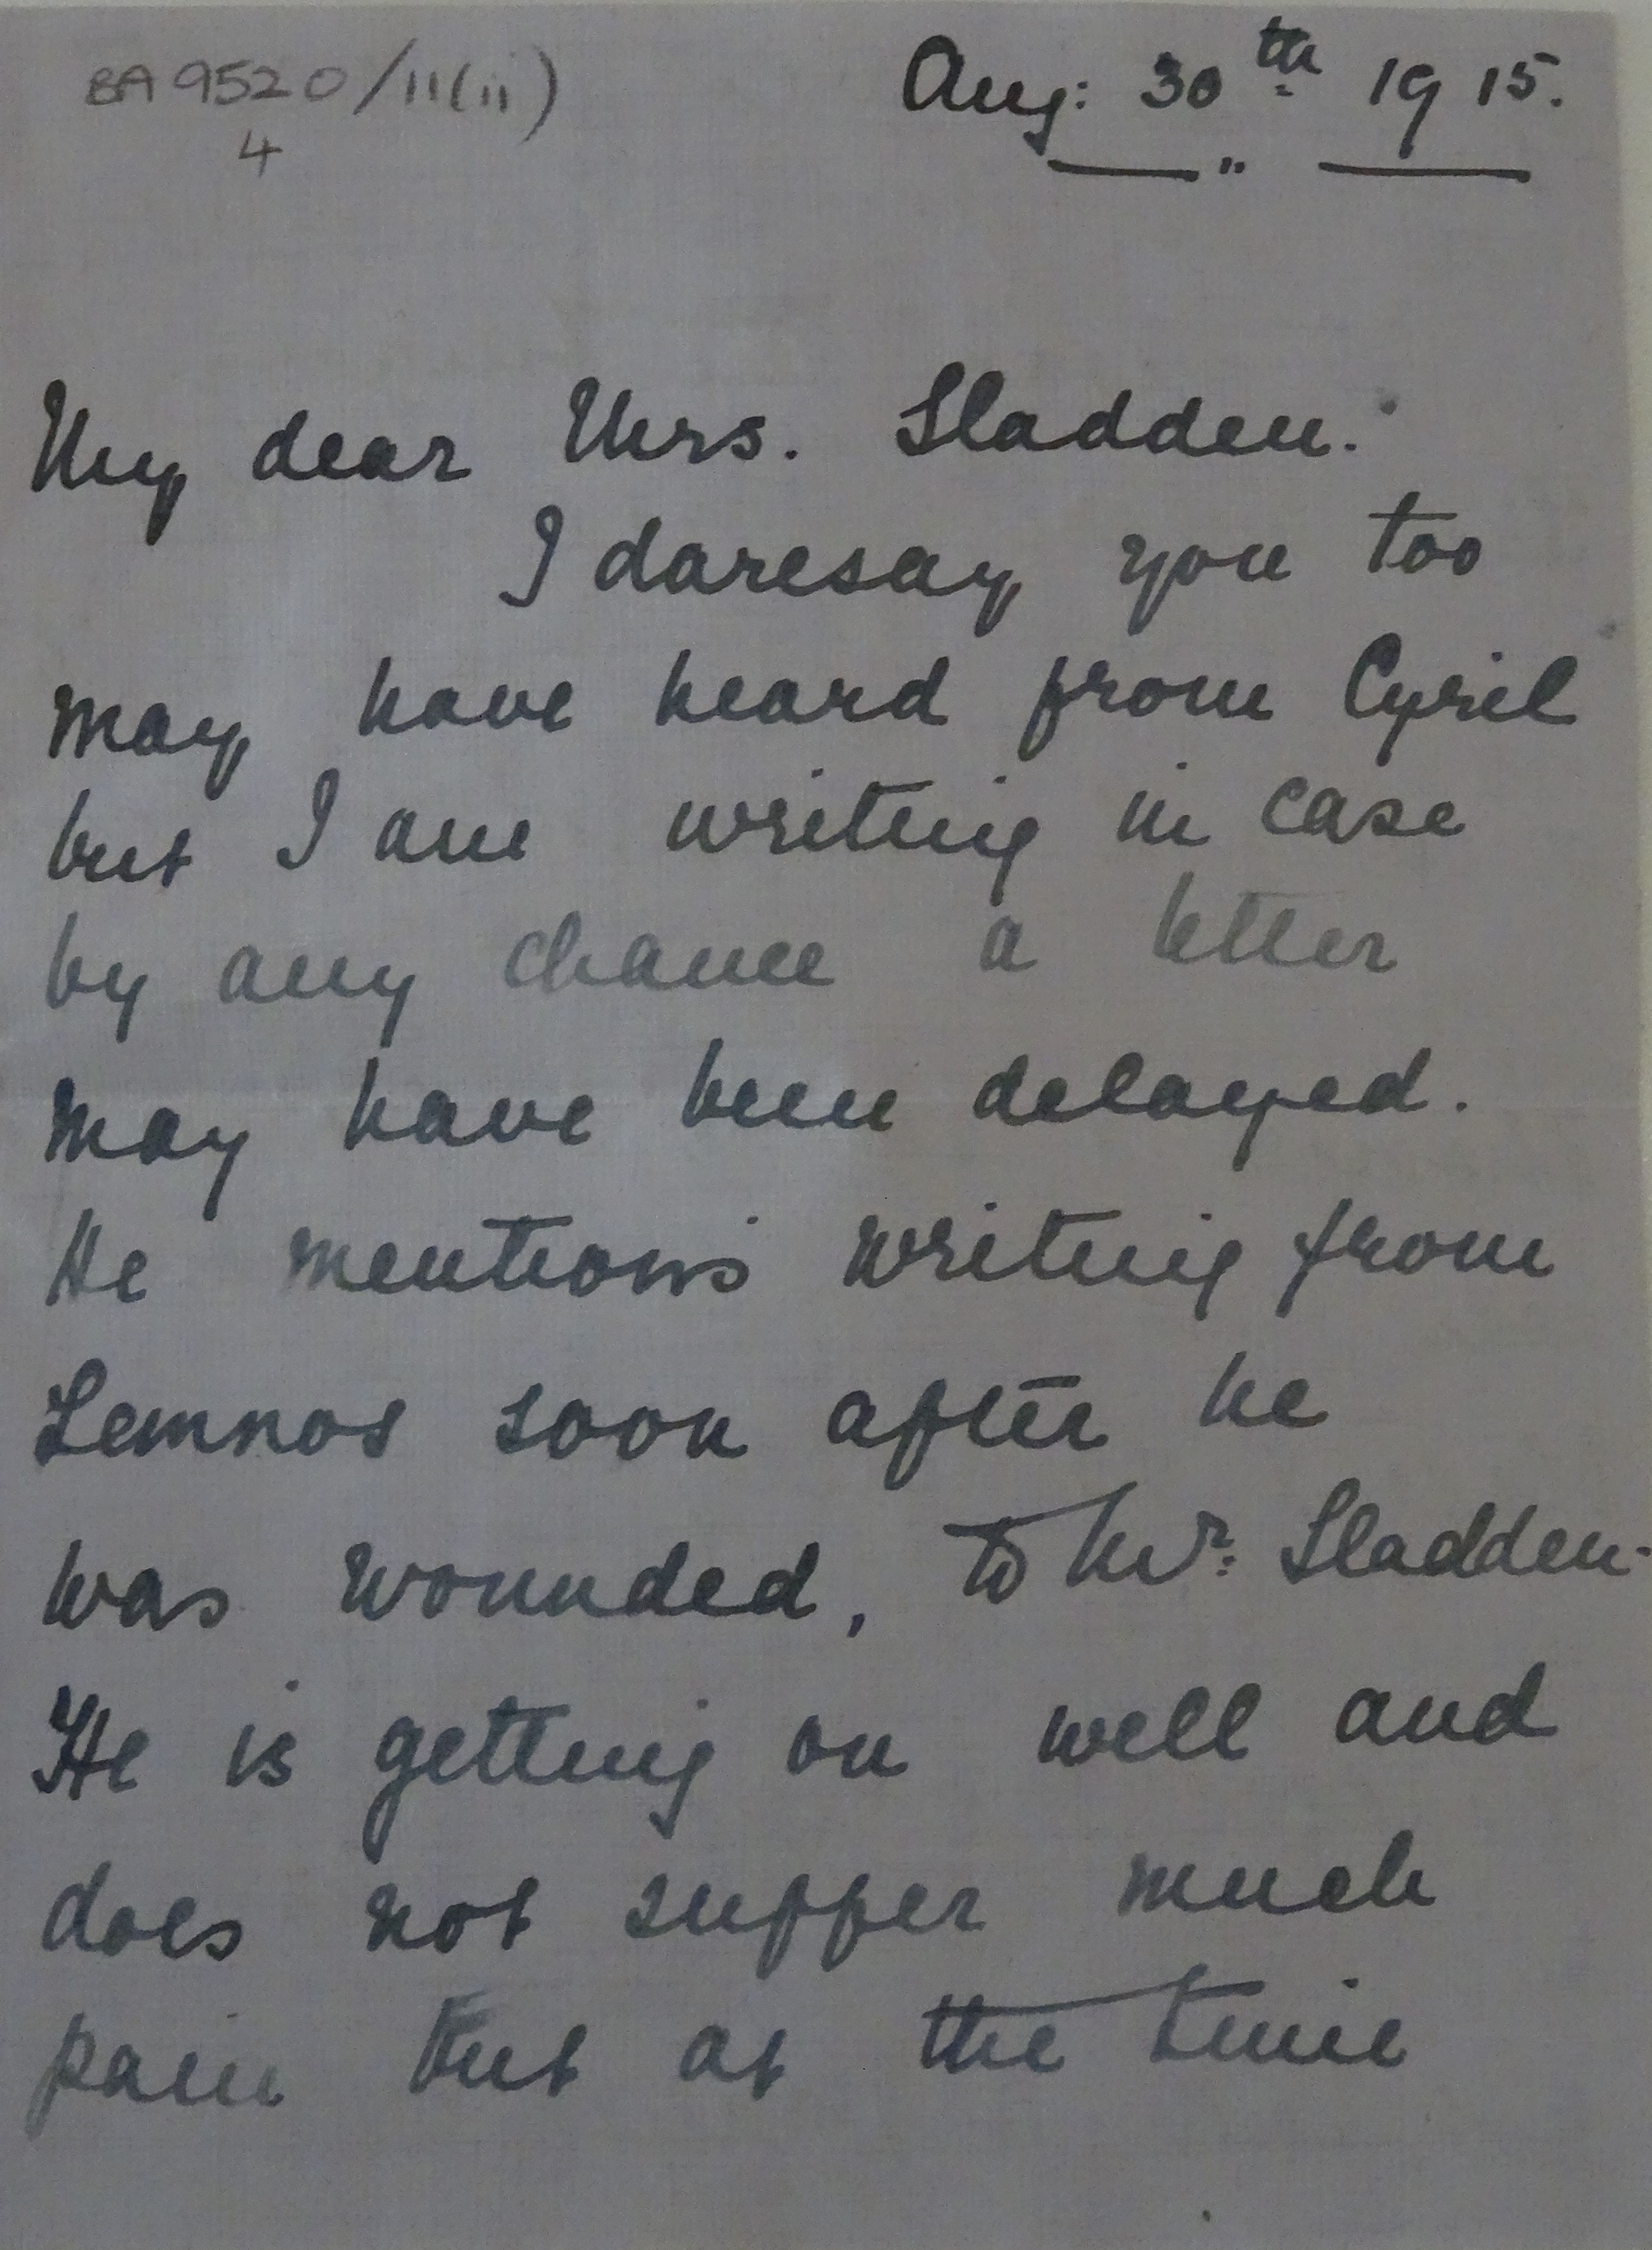 BA 9520/11(ii)
4
Aug: 30th 1915.
My dear Mrs. Sladden.
I daresay you too
may have heard from Cyril
but I am writing in case
by any chance a letter
may have been delayed.
He mentions writing from
Lemnos soon after he
was wounded, to Mr. Sladden.
He is getting on well and
does not suffer much
pain but at the time